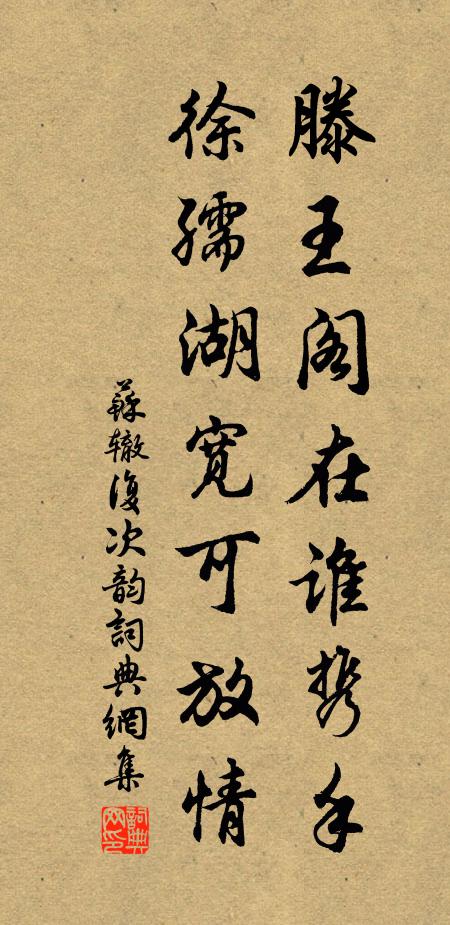 滕王阁在谁携手
徐孺湖宽可放情
蘇辙復次韵詞典網集
詞典网印